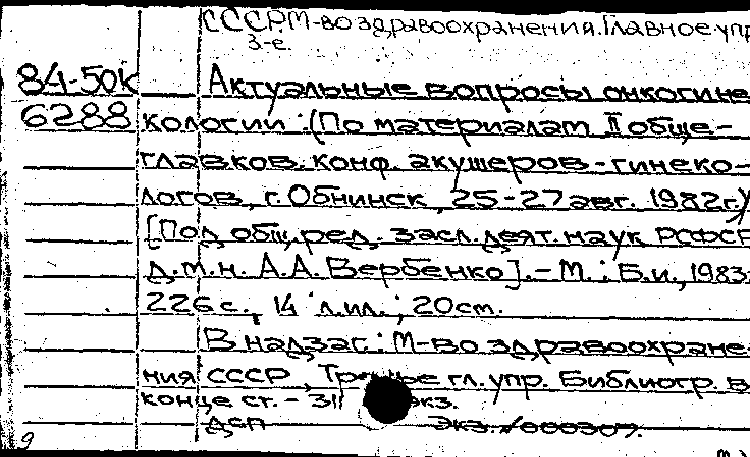 СССР М-во здравоохранения. Главное упр
3-е.
84-50К Актуальные вопросы онкогине-
6288 кологии: (По материалам II обще-
главков. конф. акушеров-гинеко-
логов, г. Обнинск, 25-27 авг. 1982г.)
[Под общ. ред. засл. деят. наук РСФСР
д.м.н. А.А. Вербенко]. - М.: Б.и., 1983
226 с., 14 л. ил.; 20 см.
В надзаг.: М-во здравоохране-
ния СССР, Третье гл. упр. Библиогр. в
конце ст. - 311 экз.
ДСП Экз. №000307.
9